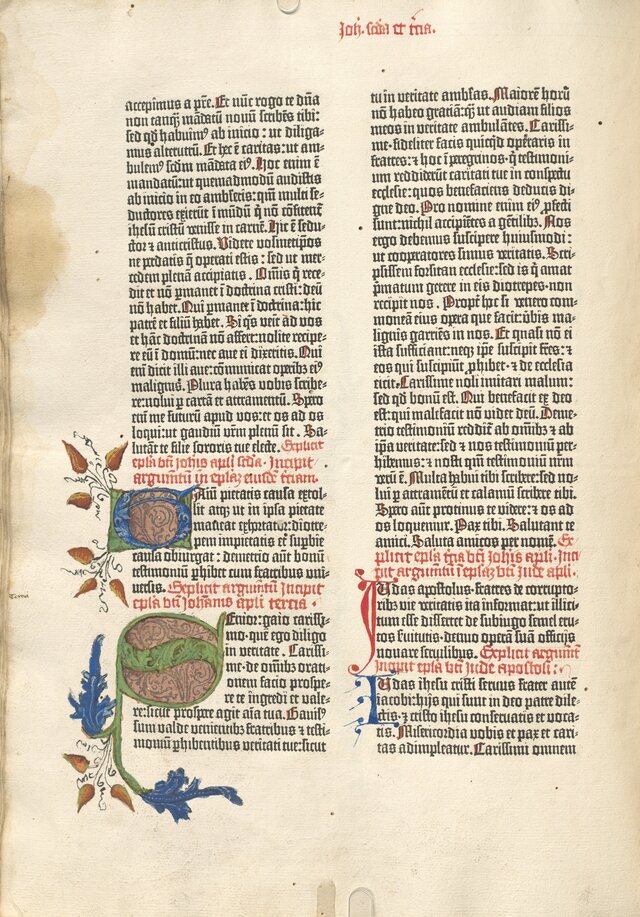 Joh̄. scd̄a et tr̄cia.
accepimus a pr̄e. Et nūc rogo te dn̄a
non tanq̄ mādatū novū scribēs tibi:
sed qd̄ habuim⁹ ab inicio: ut diliga-
mus alterutrū. Et hec ē caritas: ut am-
bulem⁹ scdm̄ mādata ei⁹. Hoc enim ē
mandatū: ut quemadmodū audistis
ab inicio in eo ambuletis: qm̄ multi se-
ductores exierūt ī mūdū q̄ nō cōfitent̄
ihesum cristū venisse in carnē. Hic ē sedu-
ctor ⁊ anticristus. Videte vosmetip̄os
ne perdatis que operati estis: sed ut mer-
cedem plenā accipiatis. Omīs q̄ rece-
dit et nō ꝑmanet ī doctrina cristi: deū
nō habet. Qui ꝑmanet ī doctrina: hic
patrē et filiū habet. Si q̄s venit ad vos
et hāc doctrinā nō affert: nolite recipe-
re eū ī domū: nec ave ei dixeritis. Qui
enī dicit illi ave: cōmunicat operib⁹ ei⁹
malignis. Plura habēs vobis scribe-
re: nolui ꝑ cartā et atramentū. Spero
enī me futurū apud vos: et os ad os
loqui: ut gaudiū vr̄m plenū sit. Sa-
lutāt te filie sororis tue electe. Explicit
epl̄a btī̄ ioh̄is apl̄i scd̄a. Incipit
argumtū in epl̄az eiusdē tr̄iam.
Gaiū pietatis causa extol-
lit atq̄ ut in ipsa pietate
maneat exhortatur: diotre-
pem impietatis et superbie
causa obiurgat: demetrio autē bonū
testimoniū ꝑhibet cum fratribus uni-
versis. Explicit argumtū Incipit
epl̄a btī̄ Iohānis apl̄i tercia.
Senior: gaio carissi-
mo: quē ego diligo
in veritate. Carissi-
me: de omīb⁹ orati-
onem facio prospe-
re te ingredi et vale-
re: sicut prospere agit aīa tua. Gavis⁹
sum valde venientib⁹ fratribus ⁊ testi-
moniū ꝑhibentibus veritati tue: sicut
tu in veritate ambl̄as. Maiorē horū
nō habeo gratiā: q̄ ut audiam filios
meos in veritate ambulātes. Carissi-
me: fideliter facis quicq̄d opēraris in
fratres: ⁊ hoc ī peregrinos: q̄ testimoni-
um reddiderūt caritati tue in conspectu
ecclesie: quos benefaciens deducis di-
gne deo. Pro nomine enim ei⁹ ꝓfecti
sunt: nichil accipiētes a gētilib⁹. Nos
ergo debemus suscipere huiusmodi:
ut cooperatores simus veritatis. Scri-
psissem forsitan ecclesie: sed is q̄ amat
prīmatum gerere in eis diotrepes: non
recipit nos. Propt̄ hoc si venero com-
moneam eius opera que facit: ūbis ma-
lignis garriēs in nos. Et quasi nō ei
ista sufficiant: neq̄ ip̄e suscipit fr̄es: ⁊
eos qui suscipiūt ꝓhibet: ⁊ de ecclesia
eicit. Carissime noli imitari malum:
sed qd̄ bonū est. Qui benefacit ex deo
est: qui malefacit nō videt deū. Deme-
trio testimoniū reddit̄ ab omīb⁹ ⁊ ab
ip̄a veritate: sed ⁊ nos testimoniū per-
hibemus: ⁊ nosti qm̄ testimoniū nr̄m
verū ē. Multa habui tibi scribere: sed no-
lui ꝑ atramentū et calamū scribere tibi.
Spero autē protinus te videre: ⁊ os ad
os loquemur. Pax tibi. Salutant te
amici. Saluta amicos per nomē. Ex-
plicit epl̄a tr̄cia btī̄ ioh̄is apl̄i. Inci-
pit argumtū ī epl̄az btī̄ iude apl̄i.
Iudas apostolus: fratres de corrupto-
rib⁹ vie veritatis ita informat: ut illici-
tum esse dissereret de subiugo semel eru-
tos servitutis: denuo operam suā officijs
novare servilibus. Explicit argumtū
incipit epl̄a btī̄ iude apostoli:
Iudas ihesu cristi servus frater autē
iacobi: hijs qui sunt in deo patre dile-
ctis: ⁊ cristo ihesu conservatis et voca-
tis. Misericordia vobis et pax et cari-
tas adimpleatur. Carissimi omnem